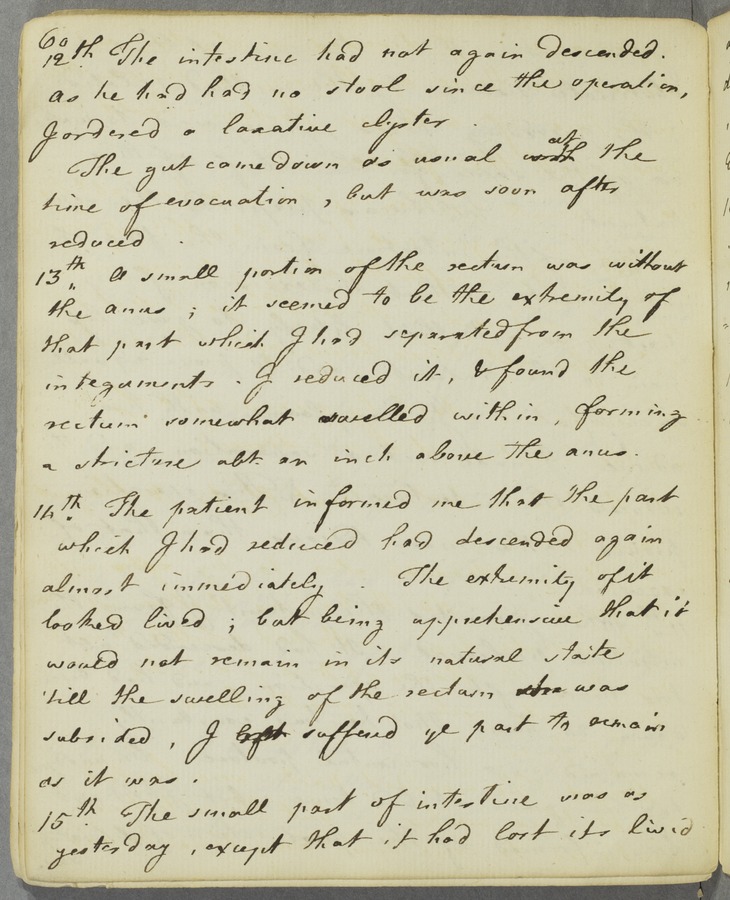 60
12th The intestine had not again descended.
as he had had no stool since the operation,
I ordered a laxative clyster.
The gut came down as usual at the
time of evacuation, but was soon after
reduced.
13th. A small portion of the rectum was without
the anus; it seemed to be the extremity of
that part which I had separated from the
integuments. I reduced it, & found the
rectum somewhat swelled within, forming
a stricture abt. an inch above the anus.
14th. The patient informed me that the part
which I had reduced had descended again
almost immediately. The extremity of it
looked livid; but being apprehensive that it
would not remain in its natural state
'till the swelling of the rectum was
subsided, I left suffered ye part to remain
as it was.
15th. The small part of intestine was as
yesterday, except that it had lost its livid